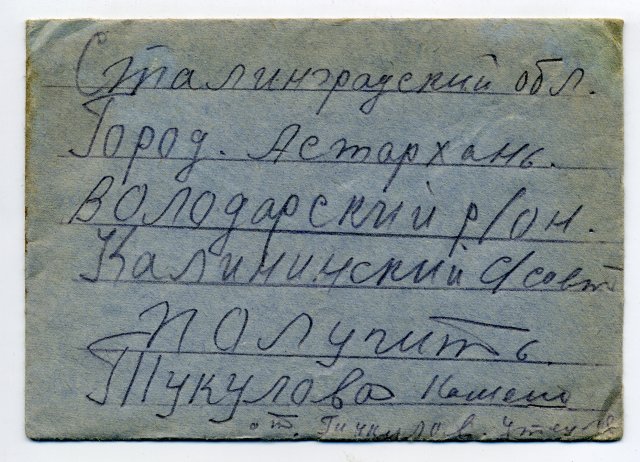 Сталинградский обл.
Город. Астархань.
Володарский р/он.
Калининский с/совт
получить
Тукулова
от.